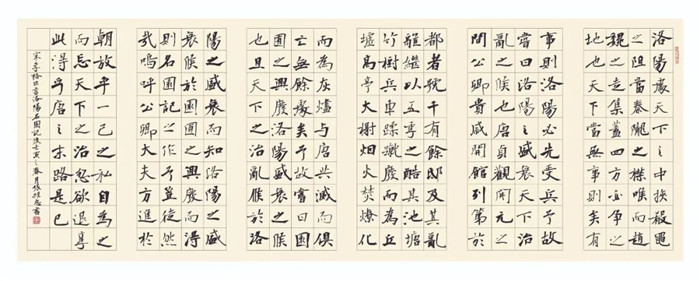 洛陽處天下之中挾殽黽
之阻當秦隴之襟喉而趙
魏之走集蓋四方必爭之
地也天下當無事則矣有
事則洛陽必先受兵予故
嘗曰洛陽之盛衰天下治
亂之候也唐貞觀開元之
間公卿貴戚開館列第於
都者號千有餘邸及其亂
離繼以五季之酷其池塘
竹樹兵車蹂蹴廢而為丘
墟高亭大榭烟火焚燎化
而為灰燼與唐共滅而俱
亡無餘處矣予故嘗曰園
圃之興廢洛陽盛衰之候
也且天下之治亂候於洛
陽之盛衰而知洛陽之盛
衰候於園圃之興廢而得
則名園記之作予豈徒然
哉嗚呼公卿大夫方進於
朝放乎一己之私自為之
而忘天下之治忽欲退享
此得乎唐之末路是已
宋李格非書洛陽名園記後壬寅之春月張書